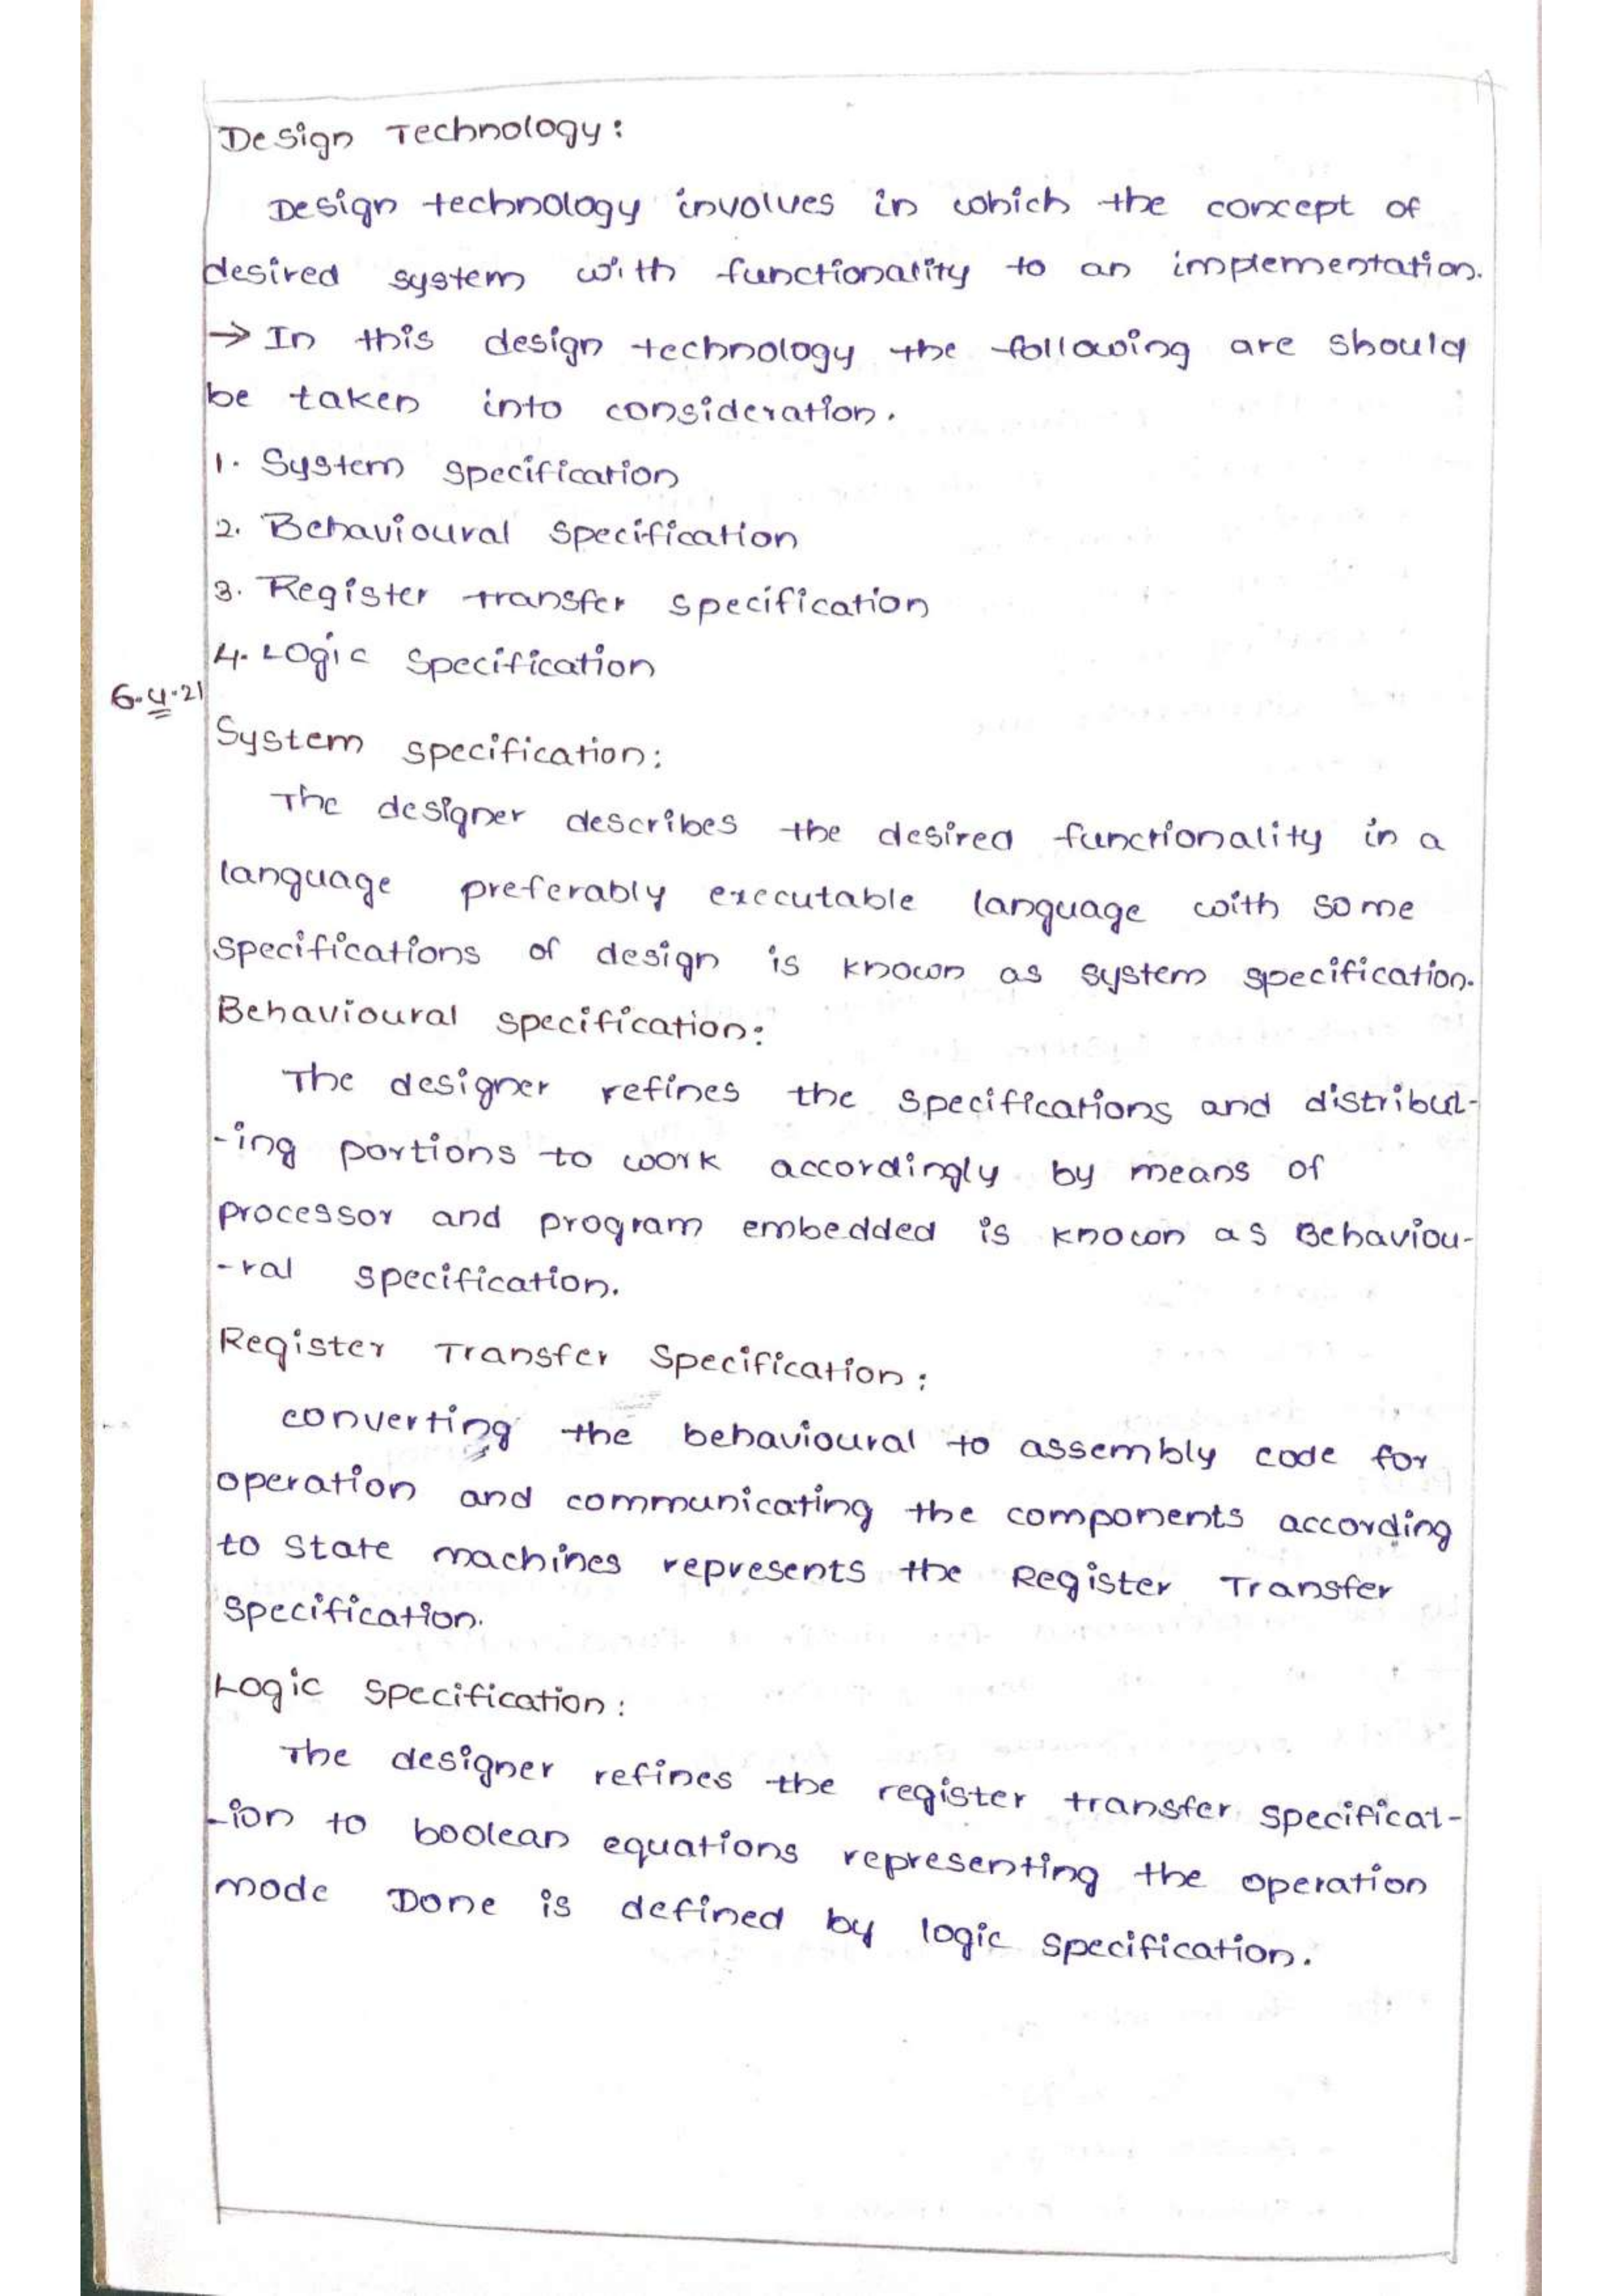 Design Technology:
Design technology involves in which the concept of
desired system with functionality to an implementation.
→ In this design technology the following are should
be taken into consideration.
1. System specification
2. Behavioural specification
3. Register transfer specification
4. Logic specification
6.4.21
System specification:
The designer describes the desired functionality in a
language preferably executable language with some
specifications of design is known as system specification.
Behavioural specification:
The designer refines the specifications and distribut-
-ing portions to work accordingly by means of
processor and program embedded is known as Behaviou-
-ral specification.
Register Transfer Specification:
converting the behavioural to assembly code for
operation and communicating the components according
to state machines represents the Register Transfer
Specification.
Logic Specification:
The designer refines the register transfer specificat-
-ion to boolean equations representing the operation
mode Done is defined by logic specification.